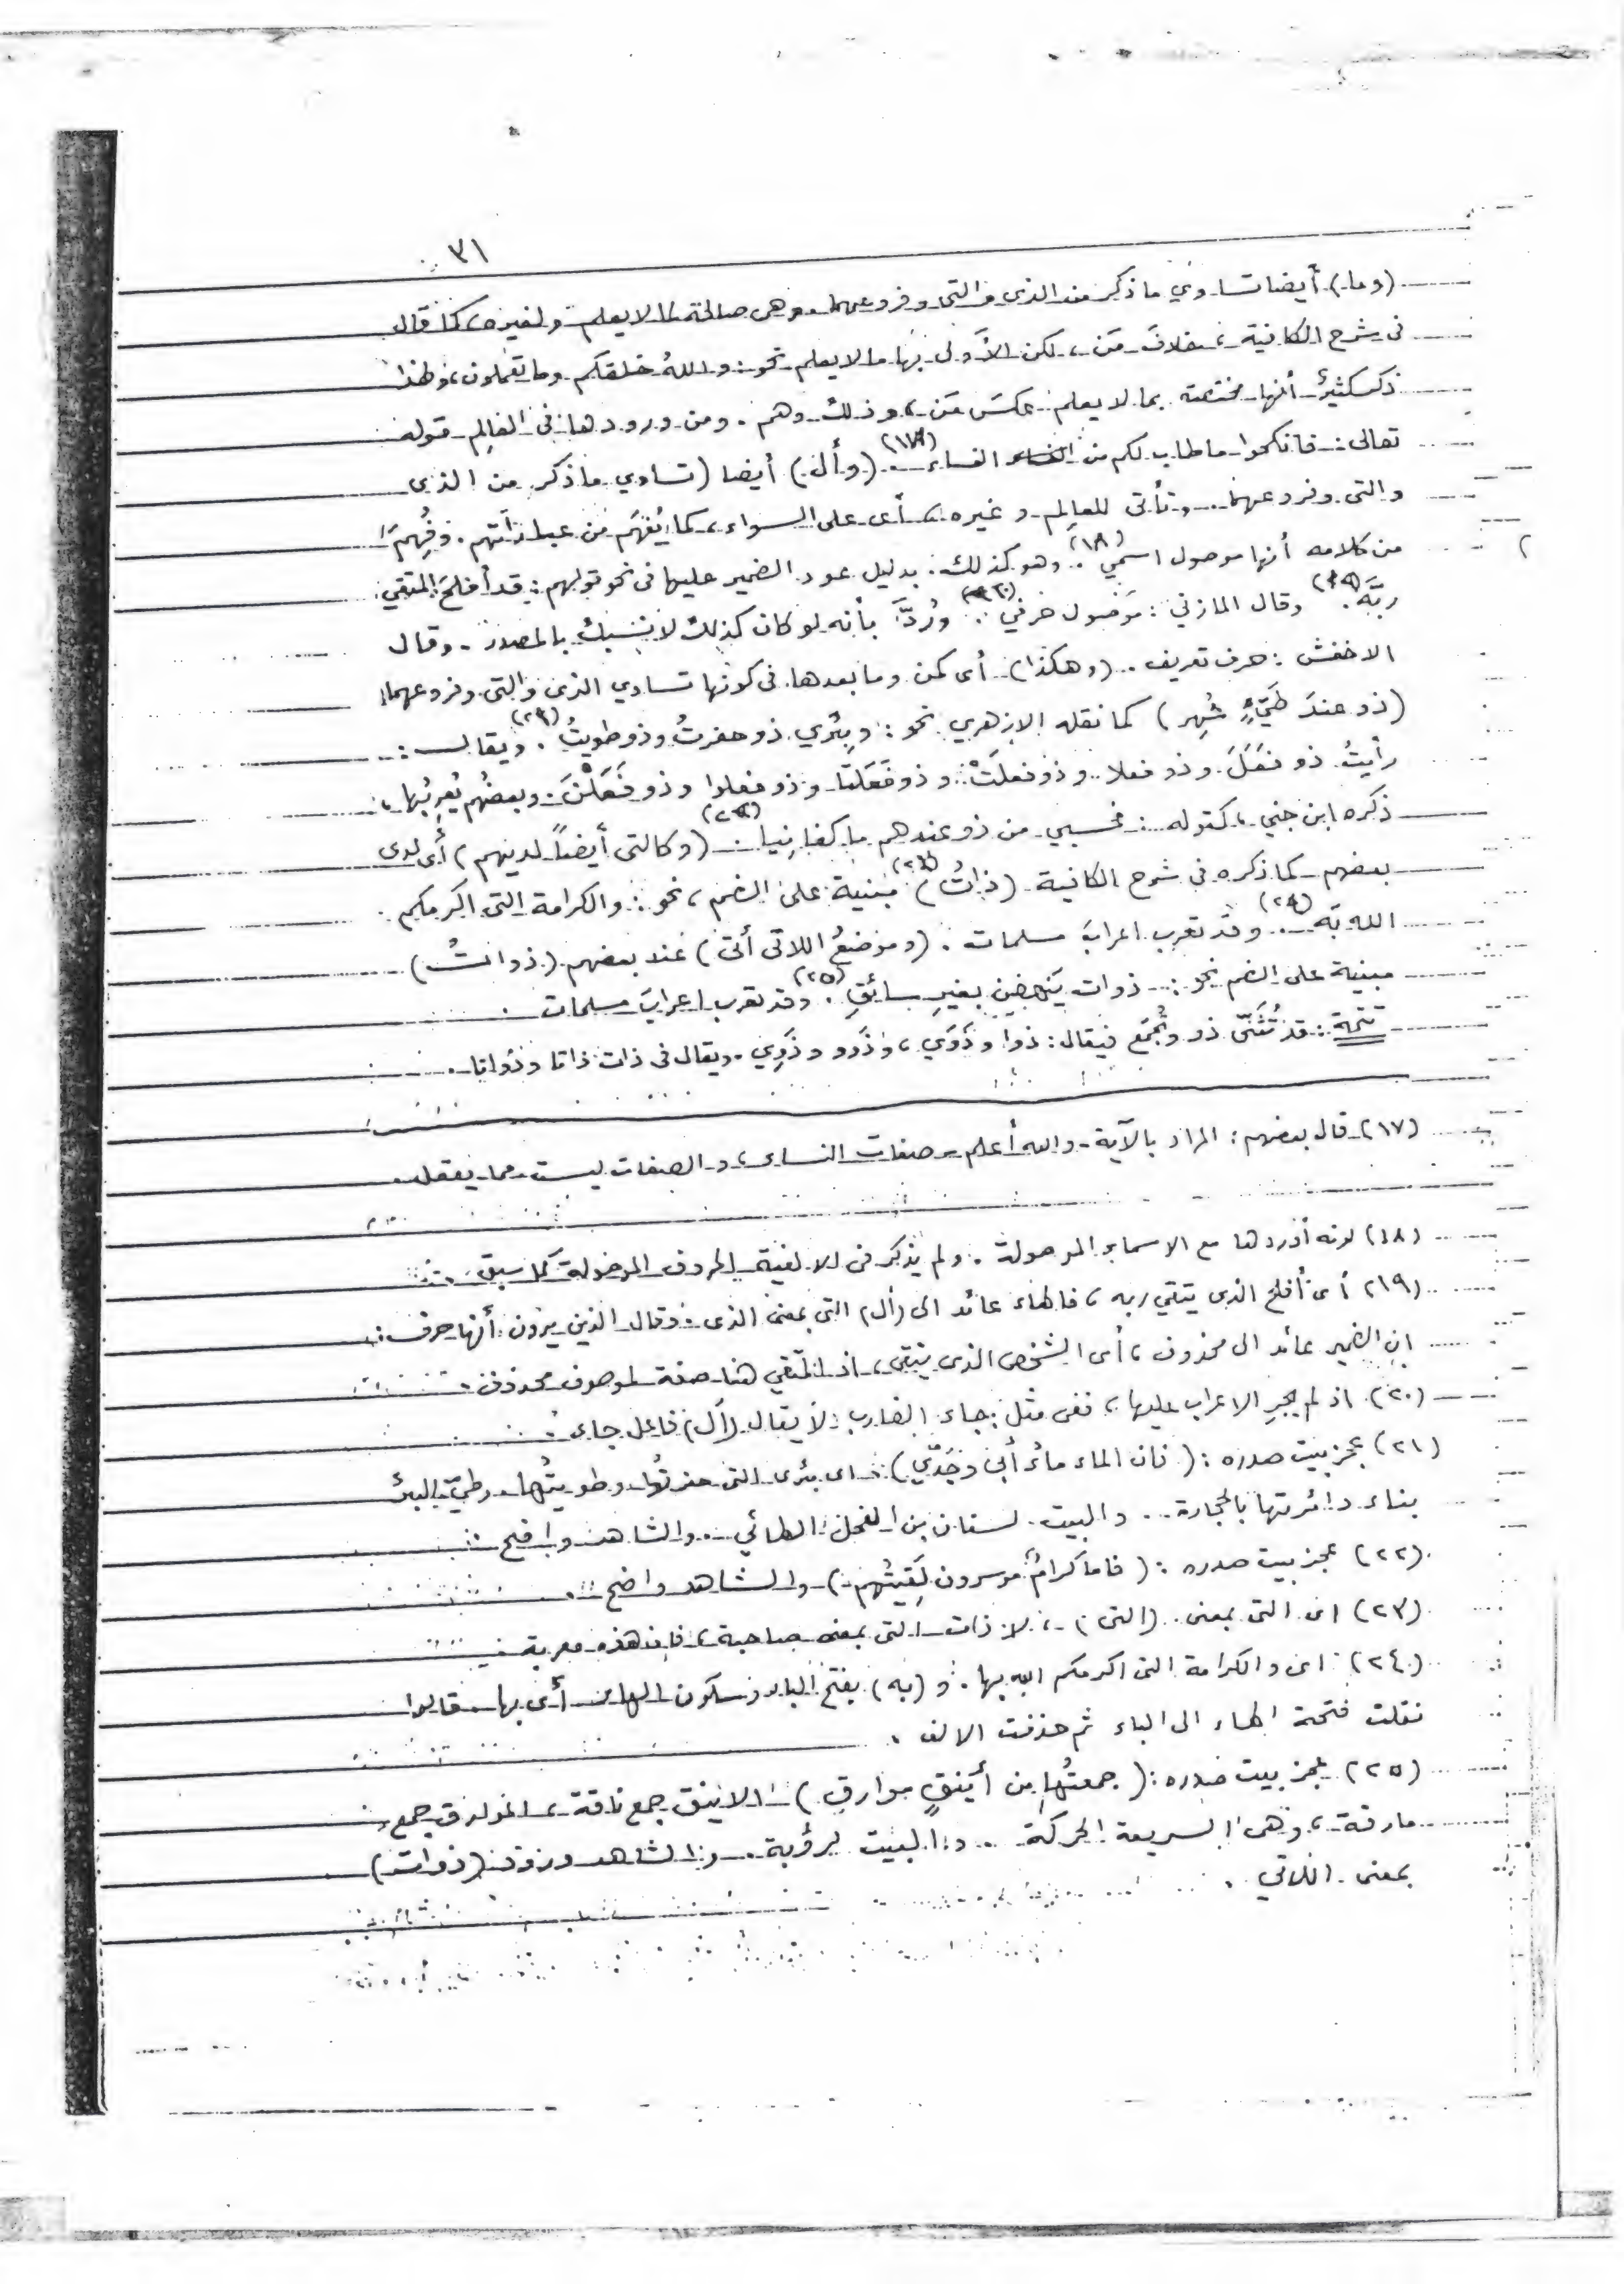 ٣١
(وما) أيضا تساوي ما ذكر من الذى والتى وفروعهما وهى صالحة لما لا يعلم ولغيره، كما قال
فى شرح الكافية، بخلاف مَن، لكن الأولى بها ما لا يعلم نحو: واللهُ خلقكم وما تعملون، ولهذا
ذكر كثيرٌ أنها مختصة بما لا يعلم عكسَ مَن، وذلك وهم. ومن ورودها فى العالِم قوله
تعالى: فانكحوا ما طاب لكم من النساء (١٧) (وأل) أيضا (تساوي ما ذكر من الذى
والتى وفروعهما. وتأتى للعالِم وغيره، أى على السواء، كما يُفهَم من عباراتهم. وفُهِمَ
من كلامه أنها موصول اسمي (١٨). وهو كذلك. بدليل عود الضمير عليها فى نحو قولهم: قد أفلحَ المتقي
ربَّه (١٩). وقال المازني: موصول حرفي (٢٠). ورُدَّ بأنه لو كان كذلك لانسبك بالمصدر. وقال
الاخفش: حرف تعريف. (وهكذا) أى كمن وما بعدها فى كونها تساوي الذى والتى وفروعهما
(ذو عندَ طَيّءٍ شُهِر) كما نقله الازهري نحو: وبئري ذو حفرتُ وذو طويتُ (٢١). ويقال:
رأيتُ ذو فعَلَ وذو فعلا وذو فعلَتْ وذو فَعَلَتا وذو فعلوا وذو فَعَلْنَ. وبعضُهم يُعرِبُها،
ذكره ابن جني، كقوله: فحسبي من ذو عندهم ما كفانِيا (٢٢). (وكالتى أيضاً لديهم) أى لدى
بعضهم كما ذكره فى شرح الكافية (ذاتُ) (٢٣) مبنية على الضم، نحو: والكرامة التى اكرمكم
الله بَه (٢٤). وقد تعرب اعرابَ مسلمات. (وموضعُ اللاتى أتى) عند بعضهم (ذواتُ)
مبنية على الضم نحو: ذوات يَنهضن بغيرِ سائقِ (٢٥). وقد تعرب اعرابَ مسلمات.
تتمة: قد تُثَنّى ذو وتُجمَع فيقال: ذوا وذَوَي، وذَوو وذَوِي. ويقال فى ذات ذاتا وذواتا.
(١٧) قال بعضهم: المراد بالآية - والله أعلم - صفات النساء، والصفات ليست مما يعقل.
(١٨) لانه أوردها مع الاسماء الموصولة. ولم يذكر فى الالفية الحروف الموصولة كما سبق.
(١٩) أى أفلح الذى يتقي ربه، فالهاء عائد الى (أل) التى بمعنى الذى. وقال الذين يرون أنها حرف:
ان الضمير عائد الى محذوف، أى الشخص الذى يتقى، اذ المتقي هنا صفة لموصوف محذوف.
(٢٠) اذ لم يجرِ الاعراب عليها، ففى مثل جاء الضارب لا يقال (أل) فاعل جاء.
(٢١) عجز بيت صدره: (فان الماء ماءُ أبي وجَدّي). اى بئرى التى حفرتُها وطويتُها. وطيّ البئر
بناء دائرتها بالحجارة. والبيت لسنان بن الفحل الطائي. والشاهد واضح.
(٢٢) عجز بيت صدره: (فاما كرامٌ موسرون لَقِيتُهم) والشاهد واضح.
(٢٣) اى التى بمعنى (التى)، لا ذات التى بمعنى صاحبة، فان هذه معربة.
(٢٤) اى والكرامة التى اكرمكم الله بها. و(به) بفتح الباء وسكون الهاء أى بها. قالوا
نقلت فتحة الهاء الى الباء ثم حذفت الالف.
(٢٥) عجز بيت صدره: (جمعتُها من أينقٍ موارقِ) الاينق جمع ناقة، الموارق جمع
مارقة، وهى السريعة الحركة. والبيت لرؤبة. والشاهد ورود (ذوات)
بمعنى اللاتي.